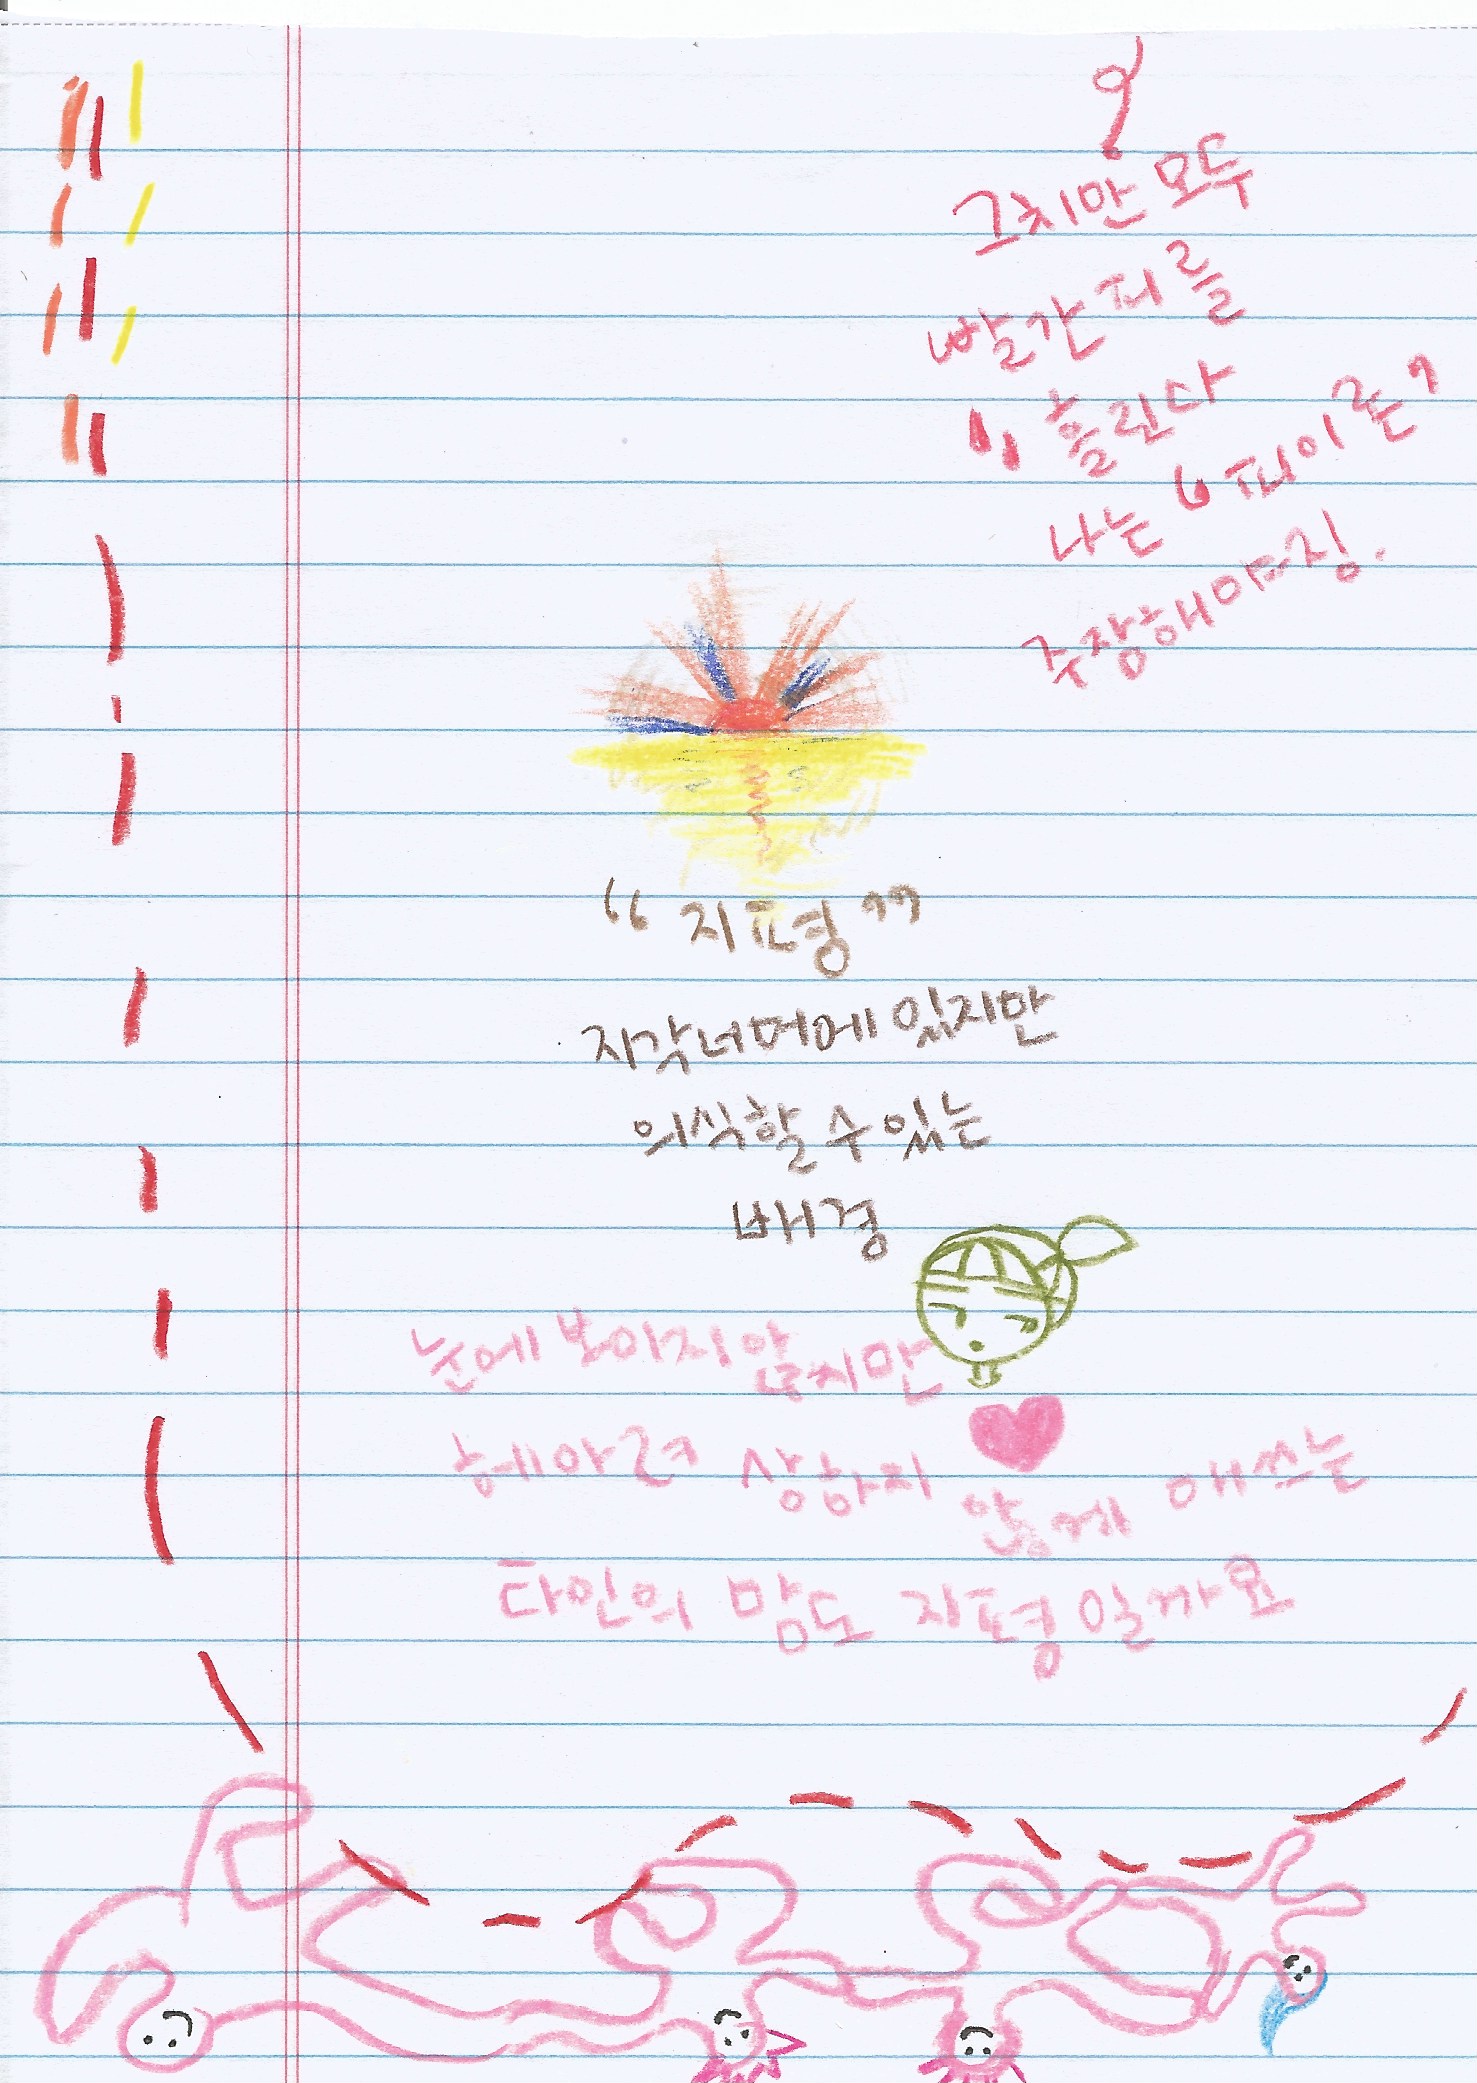 그치만 모두
빨간 피를
흘린다
나는 '피이론'
주장해야징.
"지평"
지각너머에 있지만
의식할 수 있는
배경
눈에 보이진 않지만
헤아려 상하지 않게 애쓰는
타인의 맘도 지평일까요